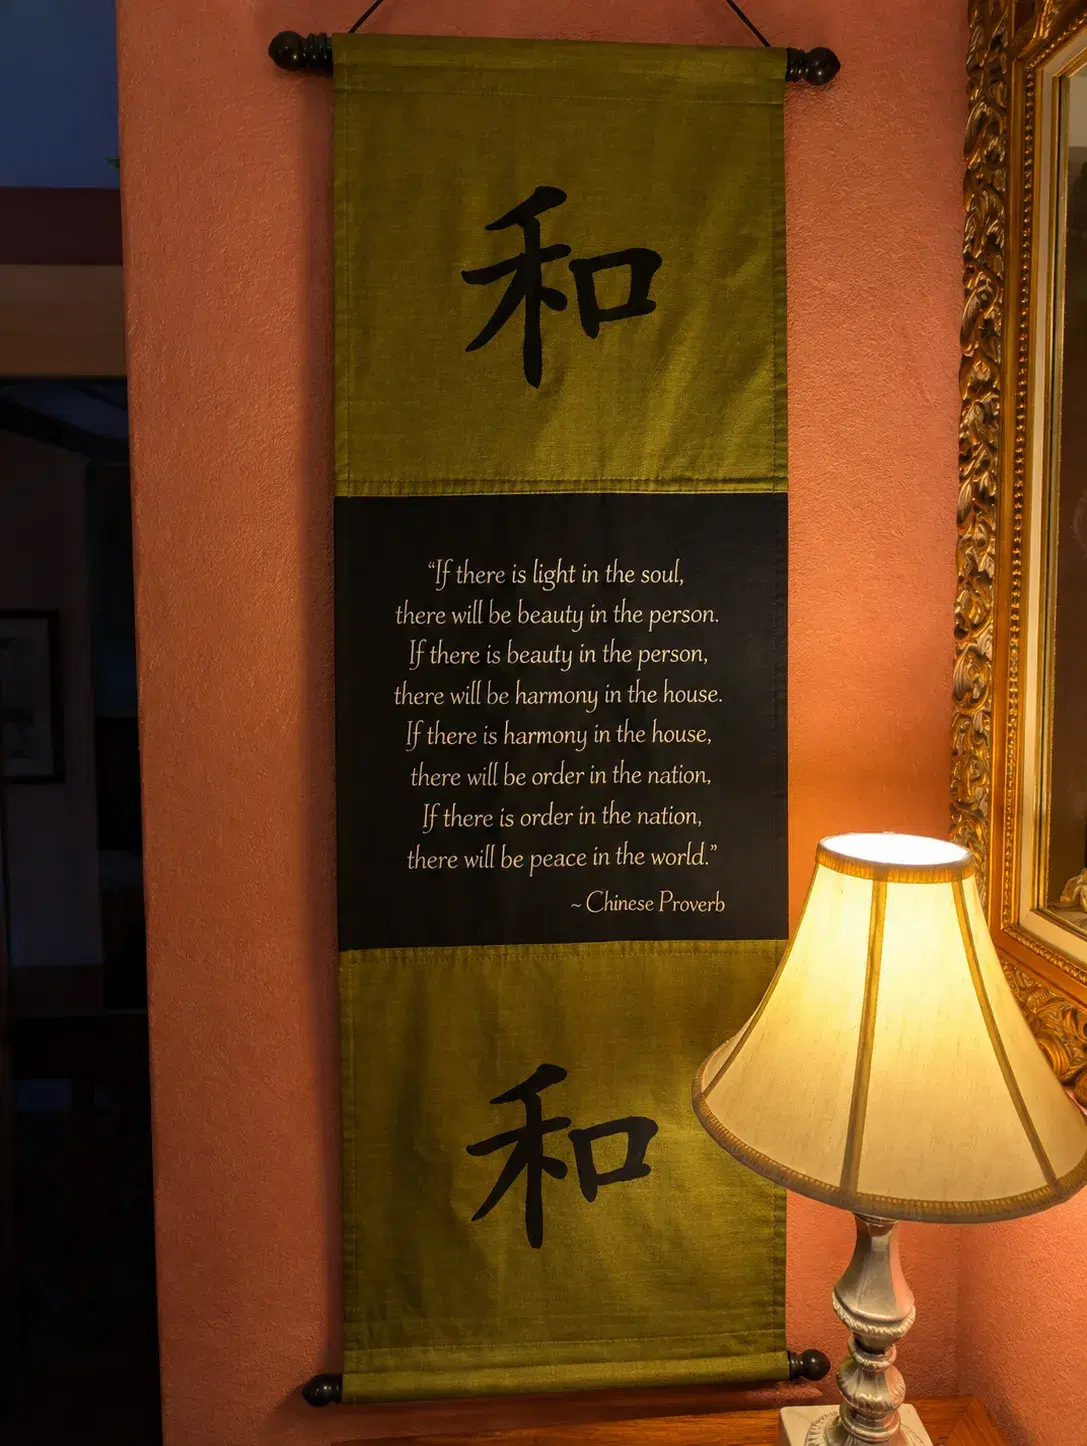 和
“If there is light in the soul,
there will be beauty in the person.
If there is beauty in the person,
there will be harmony in the house.
If there is harmony in the house,
there will be order in the nation,
If there is order in the nation,
there will be peace in the world.”
~ Chinese Proverb
和